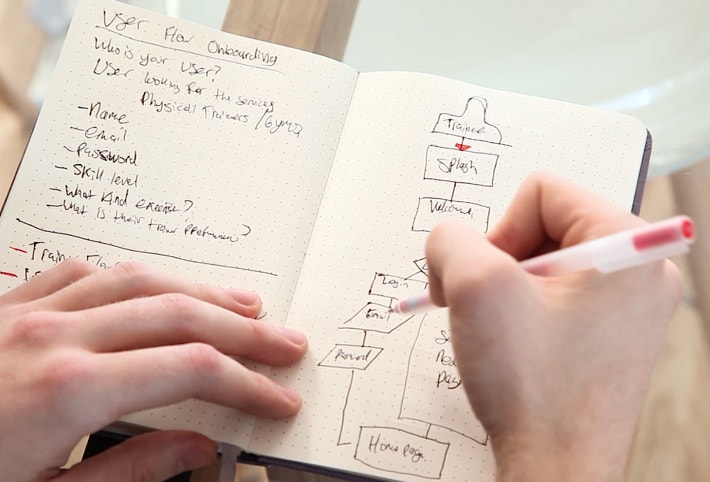 User Flow Onboarding
Who is your User?
User looking for the services
Physicall Trainers / Gyms
- Name
- email
- Password
- Skill level
- What Kind exercise?
- What is their trainer
- Trainer
Trainee
Splash
Welcome
Login
Email
Password
Home page